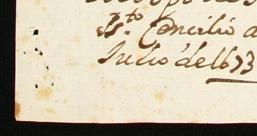 Sto. Concilio a
Julio de 1673